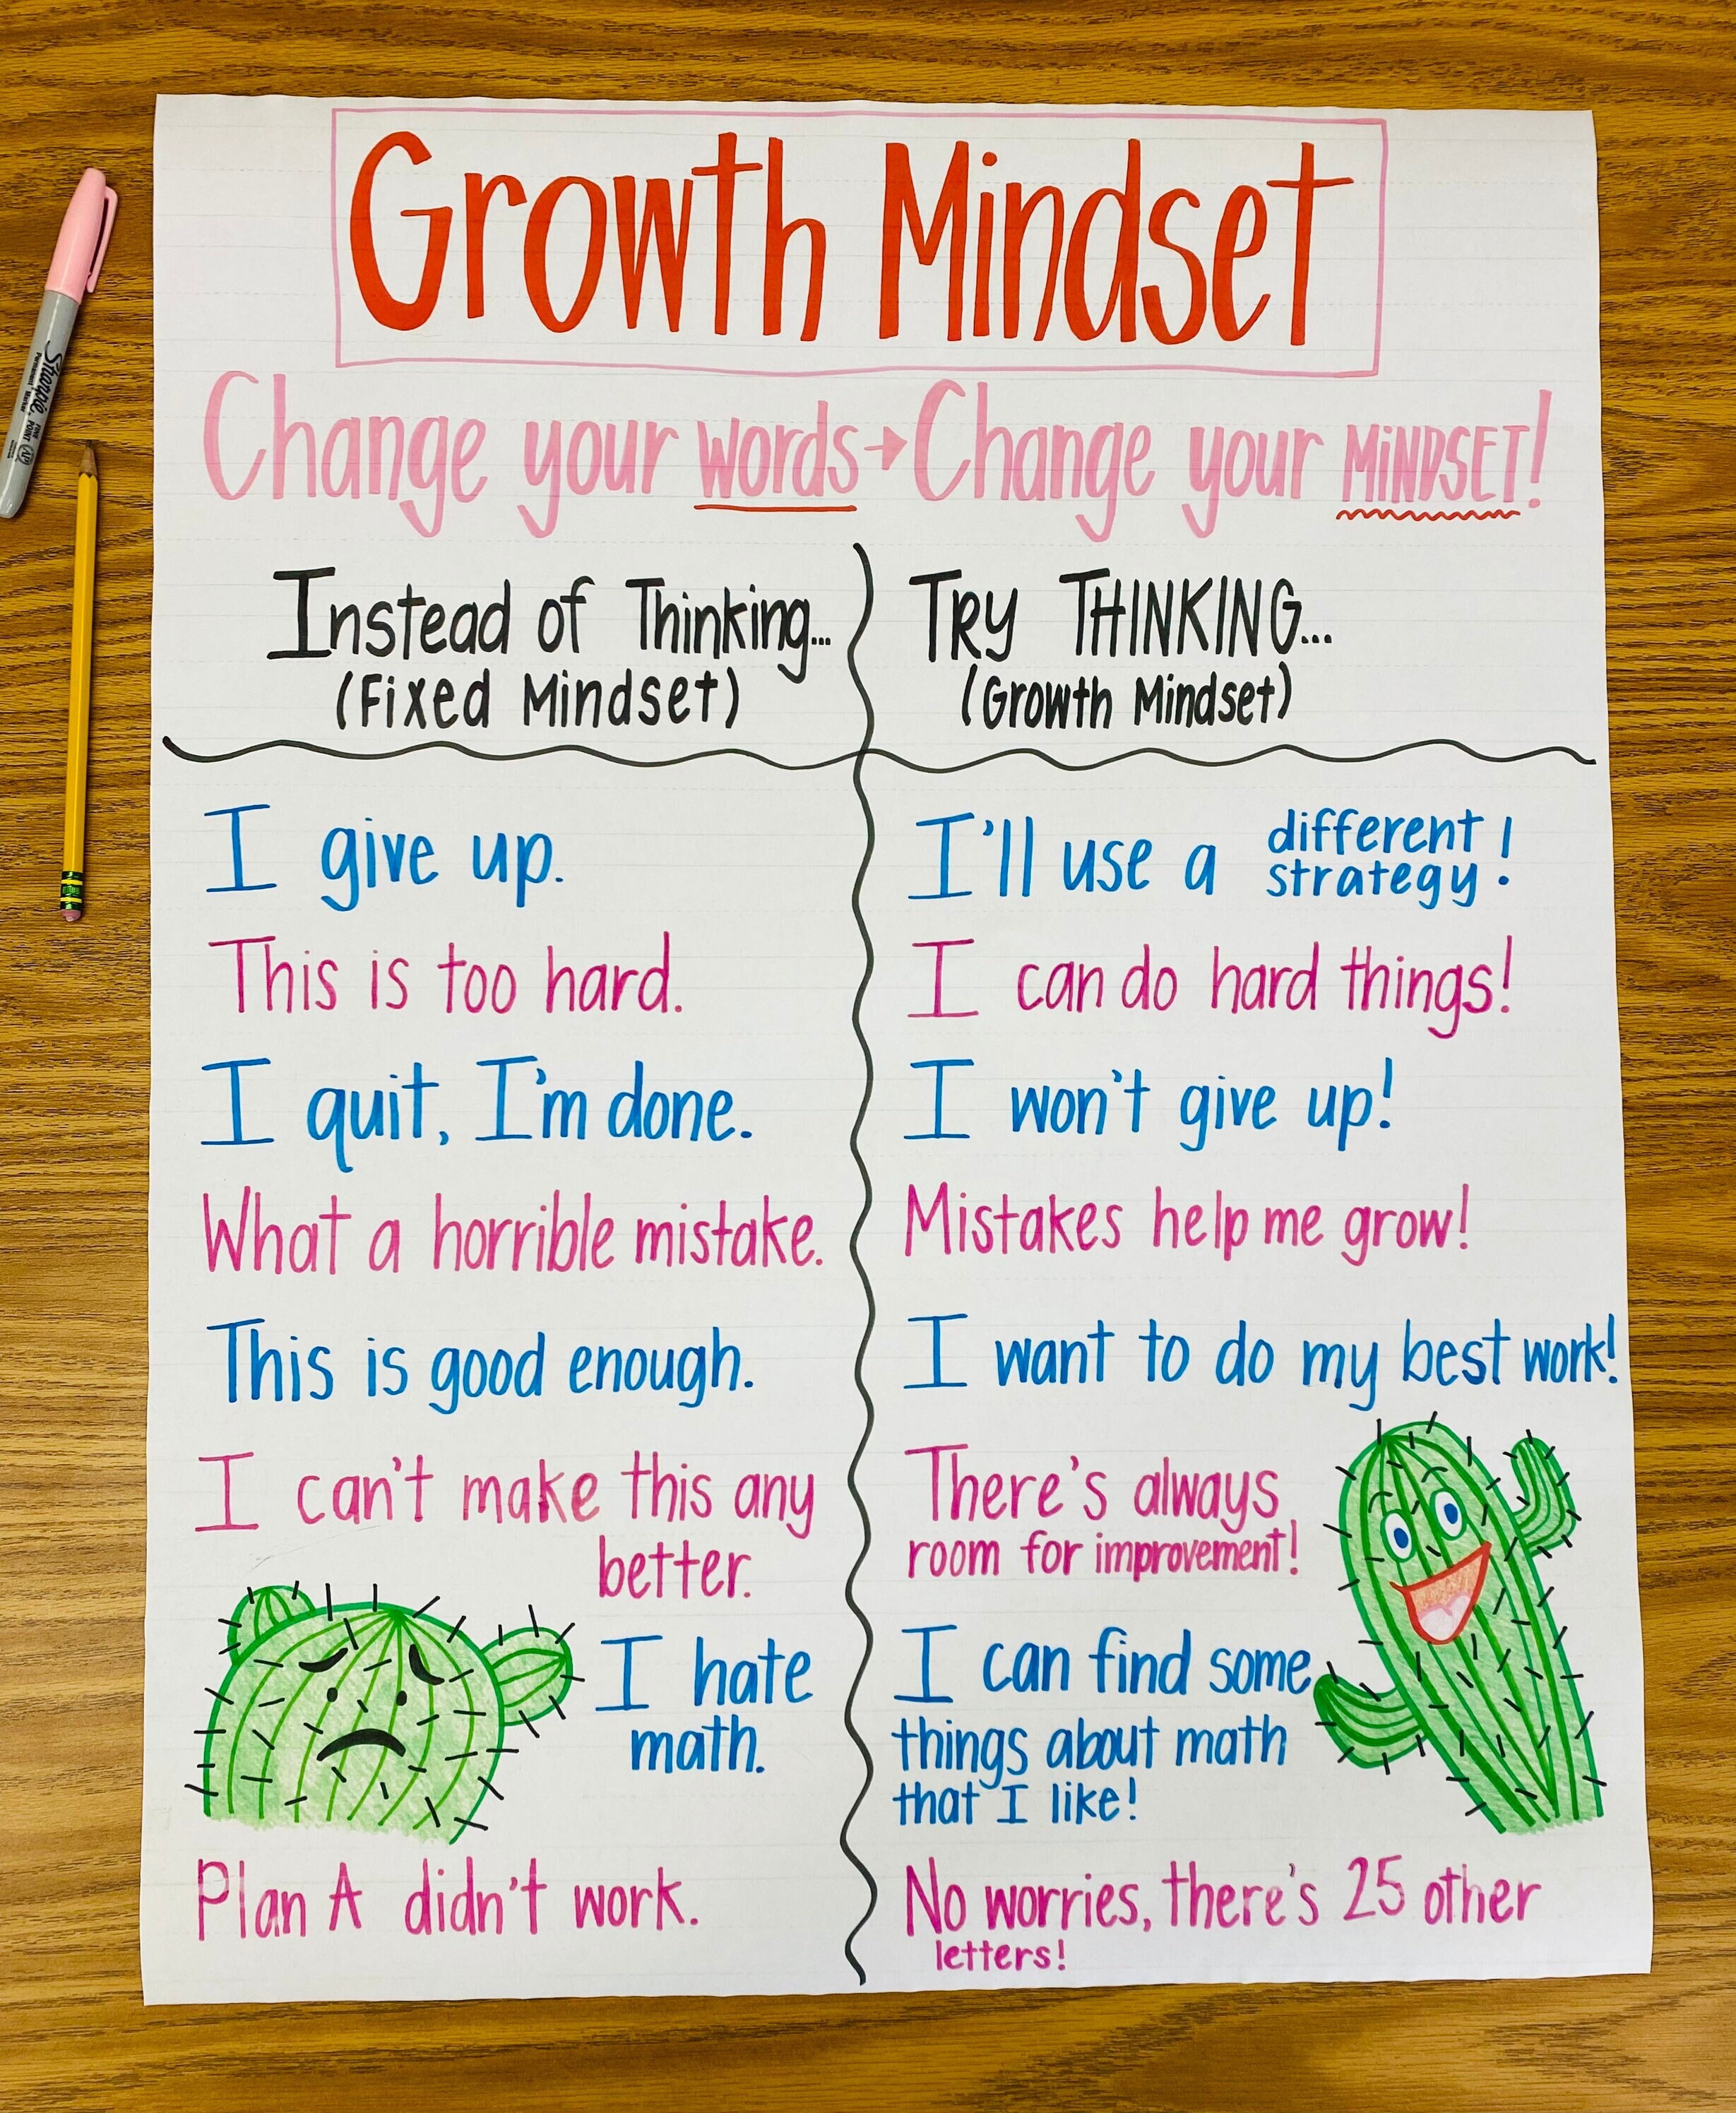 Growth Mindset
Change your words → Change your MINDSET!
Instead of Thinking...
(Fixed Mindset)
TRY THINKING...
(Growth Mindset)
I give up.
I'll use a different strategy!
This is too hard.
I can do hard things!
I quit, I'm done.
I won't give up!
What a horrible mistake.
Mistakes help me grow!
This is good enough.
I want to do my best work!
I can't make this any
better.
There's always
room for improvement!
I hate
math.
I can find some
things about math
that I like!
Plan A didn't work.
No worries, there's 25 other
letters!
Sharpie.
Permanent Marker
FINE
POINT
AP